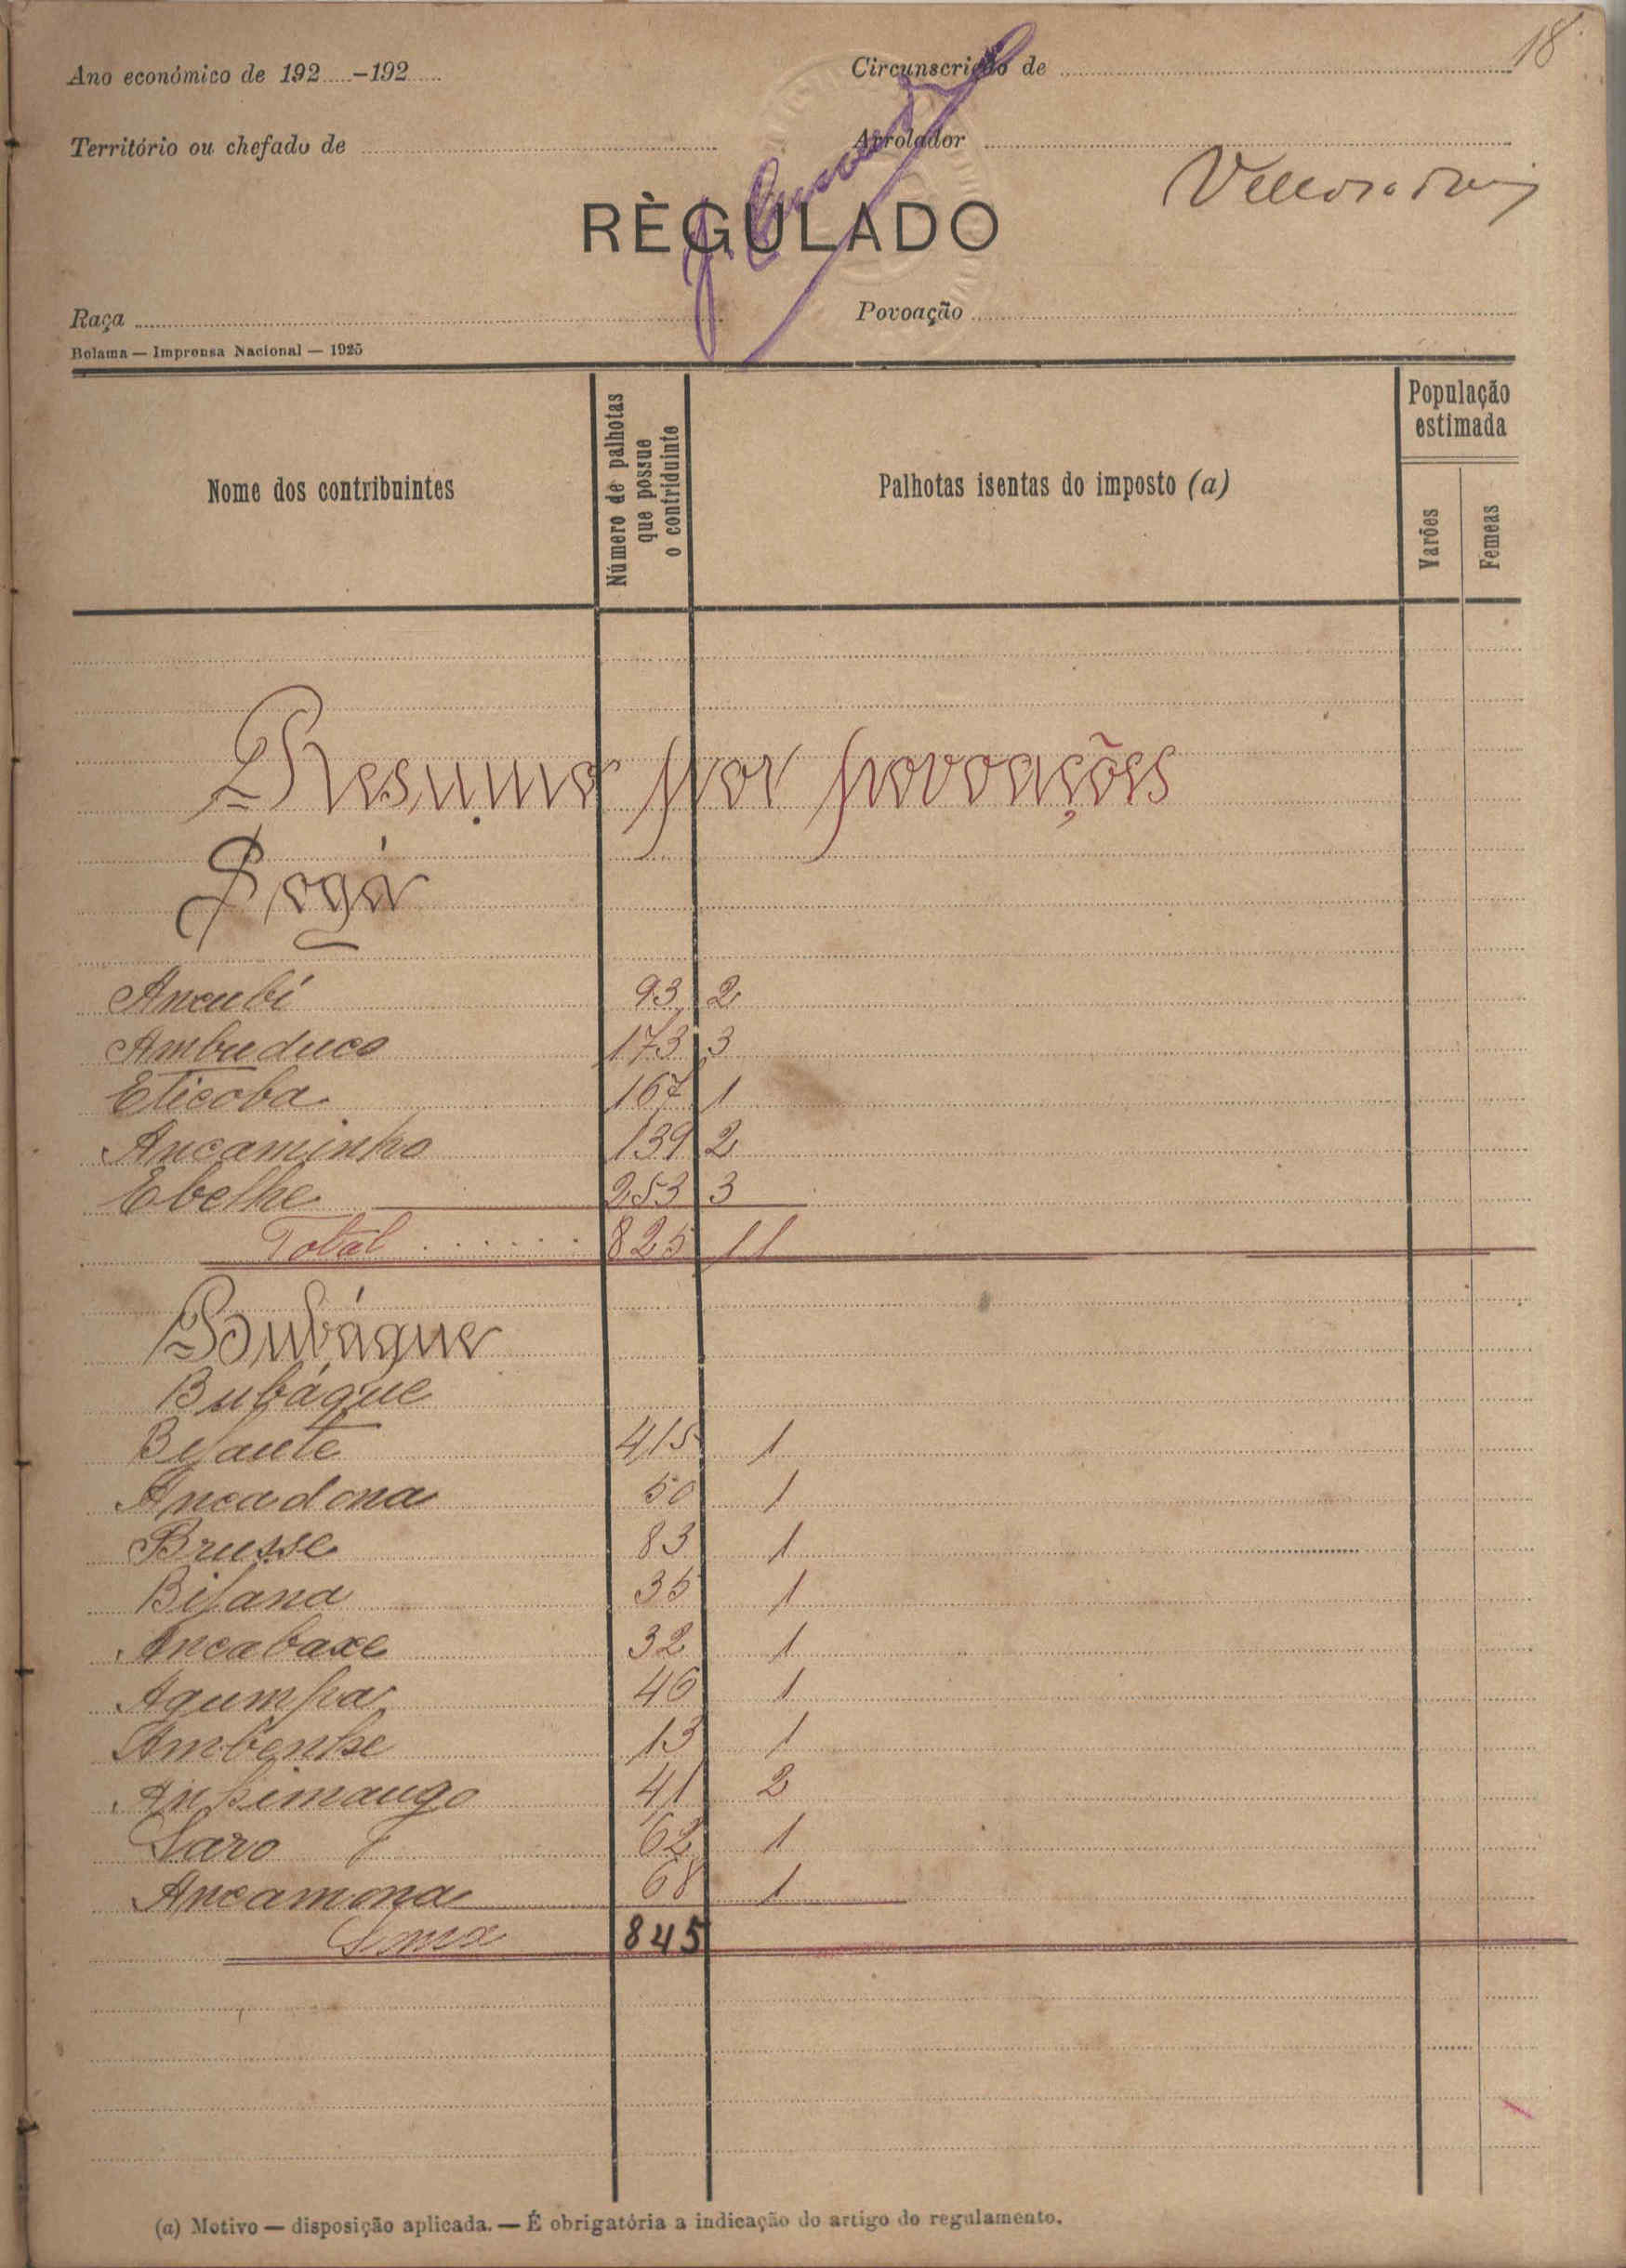 18
Ano económico de 192.....-192.....
Circunscrição de
Território ou chefado de
Arrolador
RÈGULADO
Raça
Povoação
Bolama — Imprensa Nacional — 1925
Nome dos contribuintes
Número de palhotas que possue o contriduinte
Palhotas isentas do imposto (a)
População estimada
Varões
Femeas
Resumo por povoações
Sogá
Ancubi 93 2
Ambuduco 173 3
Eticoba 167 1
Ancaminho 139 2
Ebelhe 253 3
Total 825 11
Boubáque
Bubáque
Bijante 415 1
Ancadona 50 1
Brusse 83 1
Bijana 35 1
Ancabaxe 32 1
Agumpa 46 1
Ambenhe 13 1
Anhimango 41 2
62 1
Ancamona 68 1
Soma 845
(a) Motivo — disposição aplicada. — É obrigatória a indicação do artigo do regulamento.